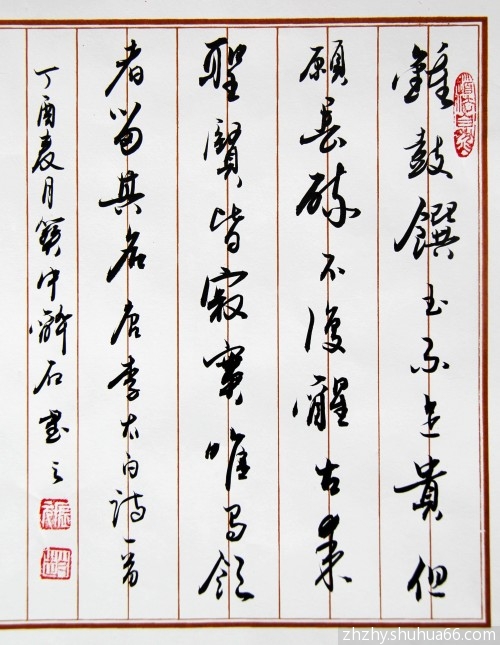 鍾鼓饌玉不足貴但
願長醉不復醒古來
聖賢皆寂寞唯有飲
者留其名唐李太白詩一首
丁酉夏月冀中石書之
道法自然
zhzhy.shuhua66.com